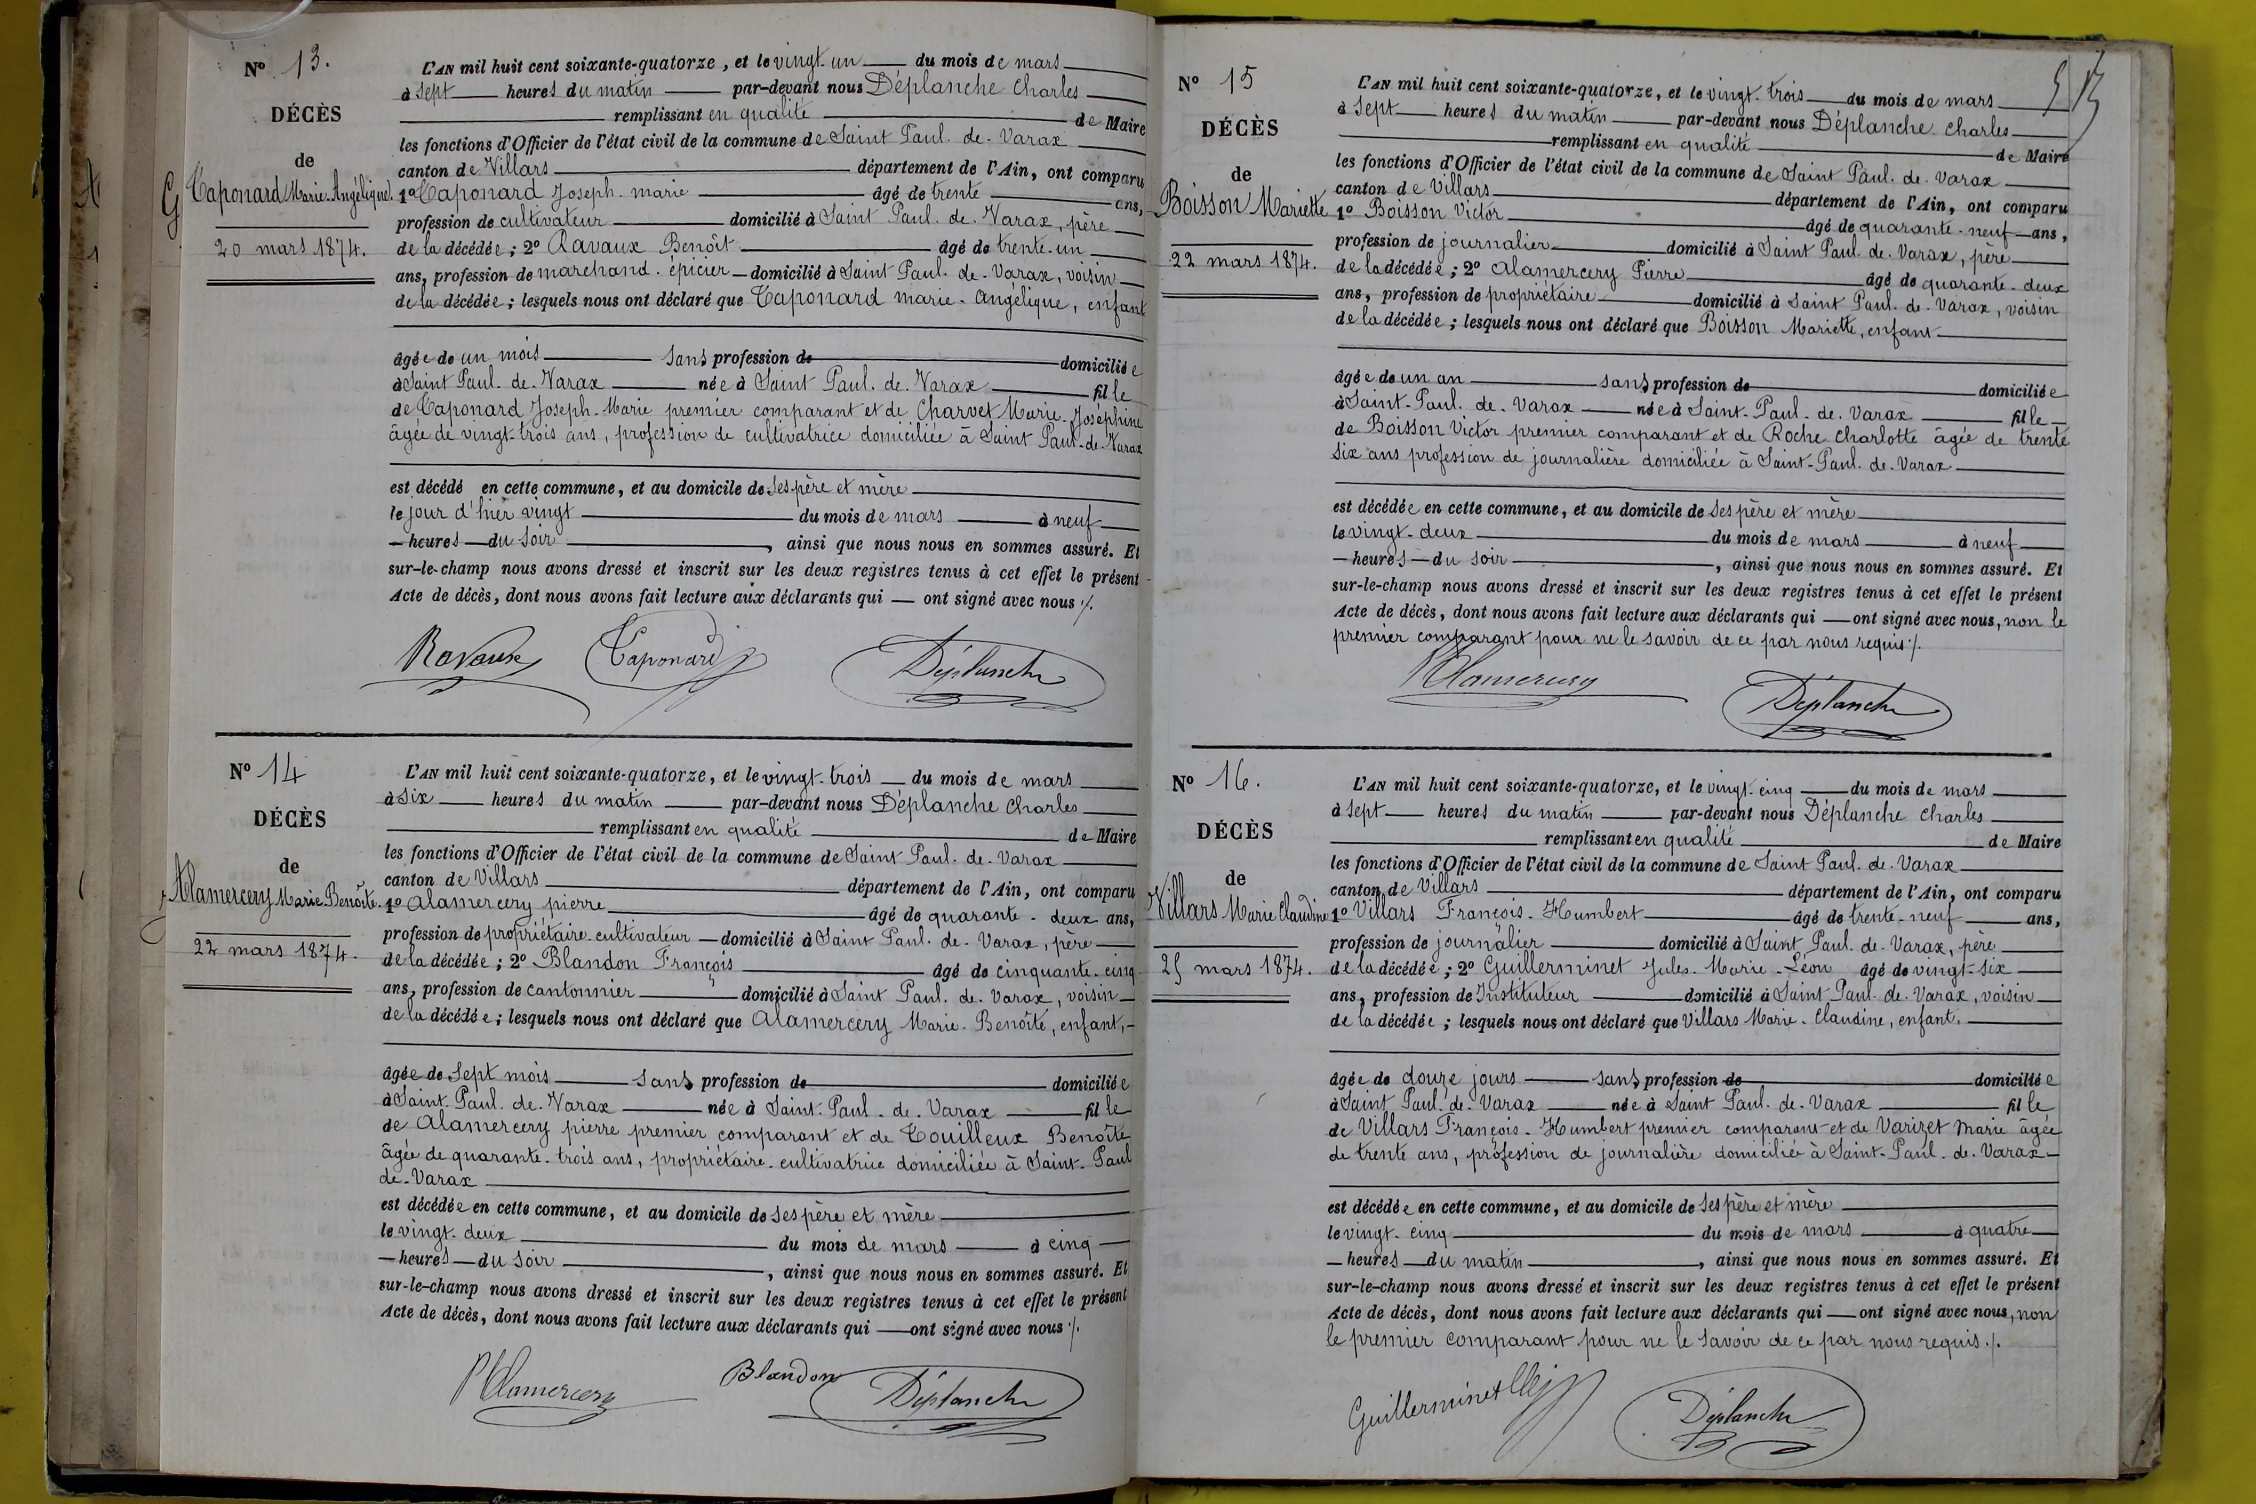 N° 13.
DÉCÈS
de
Taponard Marie-Angélique.
20 mars 1874.
L'AN mil huit cent soixante-quatorze, et le vingt-un du mois de mars
à sept heures du matin par-devant nous Déplanche Charles
remplissant en qualité de Maire
les fonctions d'Officier de l'état civil de la commune de Saint Paul-de-Varax
canton de Villars département de l'Ain, ont comparu
1° Taponard Joseph-marie âgé de trente ans,
profession de cultivateur domicilié à Saint Paul-de-Varax, père
de la décédée ; 2° Ravaux Benoît âgé de trente-un
ans, profession de marchand-épicier domicilié à Saint Paul-de-Varax, voisin
de la décédée ; lesquels nous ont déclaré que Taponard marie-angélique, enfant
âgée de un mois sans profession de domiciliée
à Saint Paul-de-Varax née à Saint Paul-de-Varax fille
de Taponard Joseph-Marie premier comparant et de Charvet Marie-Joséphine
âgée de vingt-trois ans, profession de cultivatrice domiciliée à Saint Paul-de-Varax
est décédé en cette commune, et au domicile de ses père et mère
le jour d'hier vingt du mois de mars à neuf
heures du soir, ainsi que nous nous en sommes assuré. Et
sur-le-champ nous avons dressé et inscrit sur les deux registres tenus à cet effet le présent
Acte de décès, dont nous avons fait lecture aux déclarants qui ont signé avec nous ./.
Ravaux Taponard Déplanche
N° 14
DÉCÈS
de
Alamercery Marie-Benoîte.
22 mars 1874.
L'AN mil huit cent soixante-quatorze, et le vingt-trois du mois de mars
à six heures du matin par-devant nous Déplanche Charles
remplissant en qualité de Maire
les fonctions d'Officier de l'état civil de la commune de Saint Paul-de-Varax
canton de Villars département de l'Ain, ont comparu
1° Alamercery pierre âgé de quarante-deux ans,
profession de propriétaire-cultivateur domicilié à Saint Paul-de-Varax, père
de la décédée ; 2° Blandon François âgé de cinquante-cinq
ans, profession de cantonnier domicilié à Saint Paul-de-Varax, voisin
de la décédée ; lesquels nous ont déclaré que Alamercery Marie-Benoîte, enfant,
âgée de sept mois sans profession de domiciliée
à Saint-Paul-de-Varax née à Saint-Paul-de-Varax fille
de Alamercery pierre premier comparant et de Touilleux Benoîte
âgée de quarante-trois ans, propriétaire-cultivatrice domiciliée à Saint-Paul
de-Varax
est décédée en cette commune, et au domicile de ses père et mère
le vingt-deux du mois de mars à cinq
heures du soir, ainsi que nous nous en sommes assuré. Et
sur-le-champ nous avons dressé et inscrit sur les deux registres tenus à cet effet le présent
Acte de décès, dont nous avons fait lecture aux déclarants qui ont signé avec nous ./.
P Alamercery Blandon Déplanche
N° 15
DÉCÈS
de
Boisson Mariette
22 mars 1874.
L'AN mil huit cent soixante-quatorze, et le vingt-trois du mois de mars
à sept heures du matin par-devant nous Déplanche Charles
remplissant en qualité de Maire
les fonctions d'Officier de l'état civil de la commune de Saint Paul-de-Varax
canton de Villars département de l'Ain, ont comparu
1° Boisson Victor âgé de quarante-neuf ans,
profession de journalier domicilié à Saint Paul-de-Varax, père
de la décédée ; 2° Alamercery Pierre âgé de quarante-deux
ans, profession de propriétaire domicilié à Saint Paul-de-Varax, voisin
de la décédée ; lesquels nous ont déclaré que Boisson Mariette, enfant
âgée de un an sans profession de domiciliée
à Saint-Paul-de-Varax née à Saint-Paul-de-Varax fille
de Boisson Victor premier comparant et de Roche Charlotte âgée de trente
six ans profession de journalière domiciliée à Saint-Paul-de-Varax
est décédée en cette commune, et au domicile de ses père et mère
le vingt-deux du mois de mars à neuf
heures du soir, ainsi que nous nous en sommes assuré. Et
sur-le-champ nous avons dressé et inscrit sur les deux registres tenus à cet effet le présent
Acte de décès, dont nous avons fait lecture aux déclarants qui ont signé avec nous, non le
premier comparant pour ne le savoir de ce par nous requis ./.
P Alamercery Déplanche
N° 16.
DÉCÈS
de
Villars Marie Claudine
25 mars 1874.
L'AN mil huit cent soixante-quatorze, et le vingt-cinq du mois de mars
à sept heures du matin par-devant nous Déplanche Charles
remplissant en qualité de Maire
les fonctions d'Officier de l'état civil de la commune de Saint Paul-de-Varax
canton de Villars département de l'Ain, ont comparu
1° Villars François-Humbert âgé de trente-neuf ans,
profession de journalier domicilié à Saint Paul-de-Varax, père
de la décédée ; 2° Guillerminet Jules-Marie-Léon âgé de vingt-six
ans, profession de Instituteur domicilié à Saint Paul-de-Varax, voisin
de la décédée ; lesquels nous ont déclaré que Villars Marie-Claudine, enfant.
âgée de douze jours sans profession de domiciliée
à Saint Paul-de-Varax née à Saint Paul-de-Varax fille
de Villars François-Humbert premier comparant et de Varizet Marie âgée
de trente ans, profession de journalière domiciliée à Saint-Paul-de-Varax
est décédée en cette commune, et au domicile de ses père et mère
le vingt-cinq du mois de mars à quatre
heures du matin, ainsi que nous nous en sommes assuré. Et
sur-le-champ nous avons dressé et inscrit sur les deux registres tenus à cet effet le présent
Acte de décès, dont nous avons fait lecture aux déclarants qui ont signé avec nous, non
le premier comparant pour ne le savoir de ce par nous requis ./.
Guillerminet Déplanche